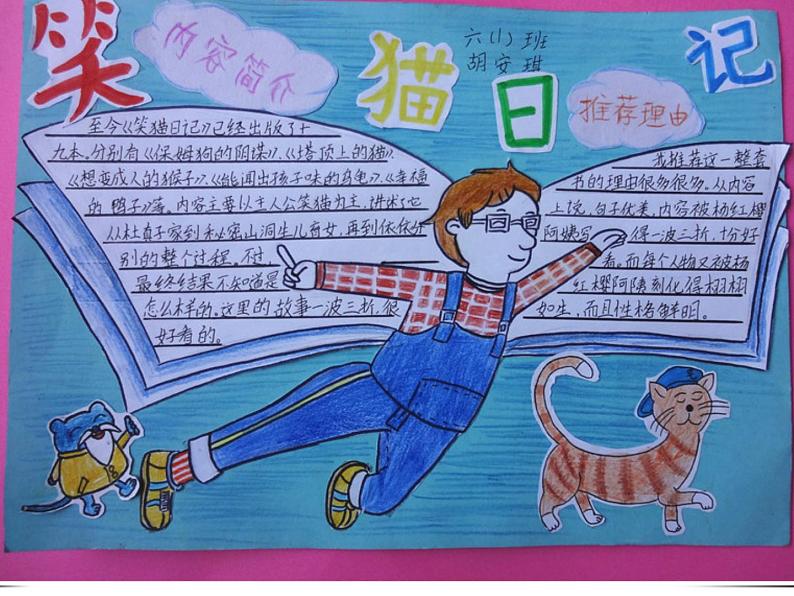 笑猫日记
六(1)班
胡安琪
内容简介
至今《笑猫日记》已经出版了十
九本，分别有《保姆狗的阴谋》、《塔顶上的猫》、
《想变成人的猴子》、《能闻出孩子味的乌龟》、《幸福
的鸭子》等。内容主要以主人公笑猫为主，讲述了它
从杜真子家到秘密山洞生儿育女，再到依依
别的整个过程，不过，
最终结果不知道是
怎么样的，这里的故事一波三折，很
好看的。
推荐理由
我推荐这一整套
书的理由很多很多。从内容
上说，句子优美，内容被杨红樱
阿姨写得一波三折，十分好
看。而每个人物又被杨
红樱阿姨刻化得栩栩
如生，而且性格鲜明。